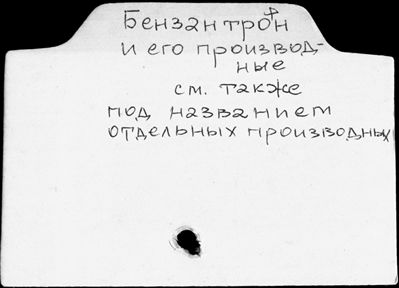 Бензантрон
и его производ-
ные
см. также
под названием
отдельных производных